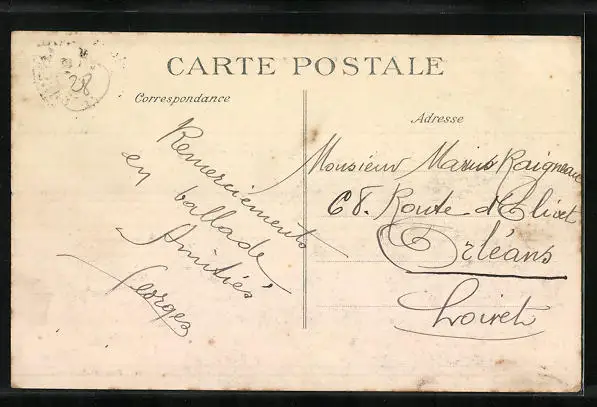 CARTE POSTALE
Correspondance
Adresse
Remerciements
en ballade
Amitiés
Georges
Monsieur Marius Raigneau
68. Route d'Olivet
Orléans
Loiret
28